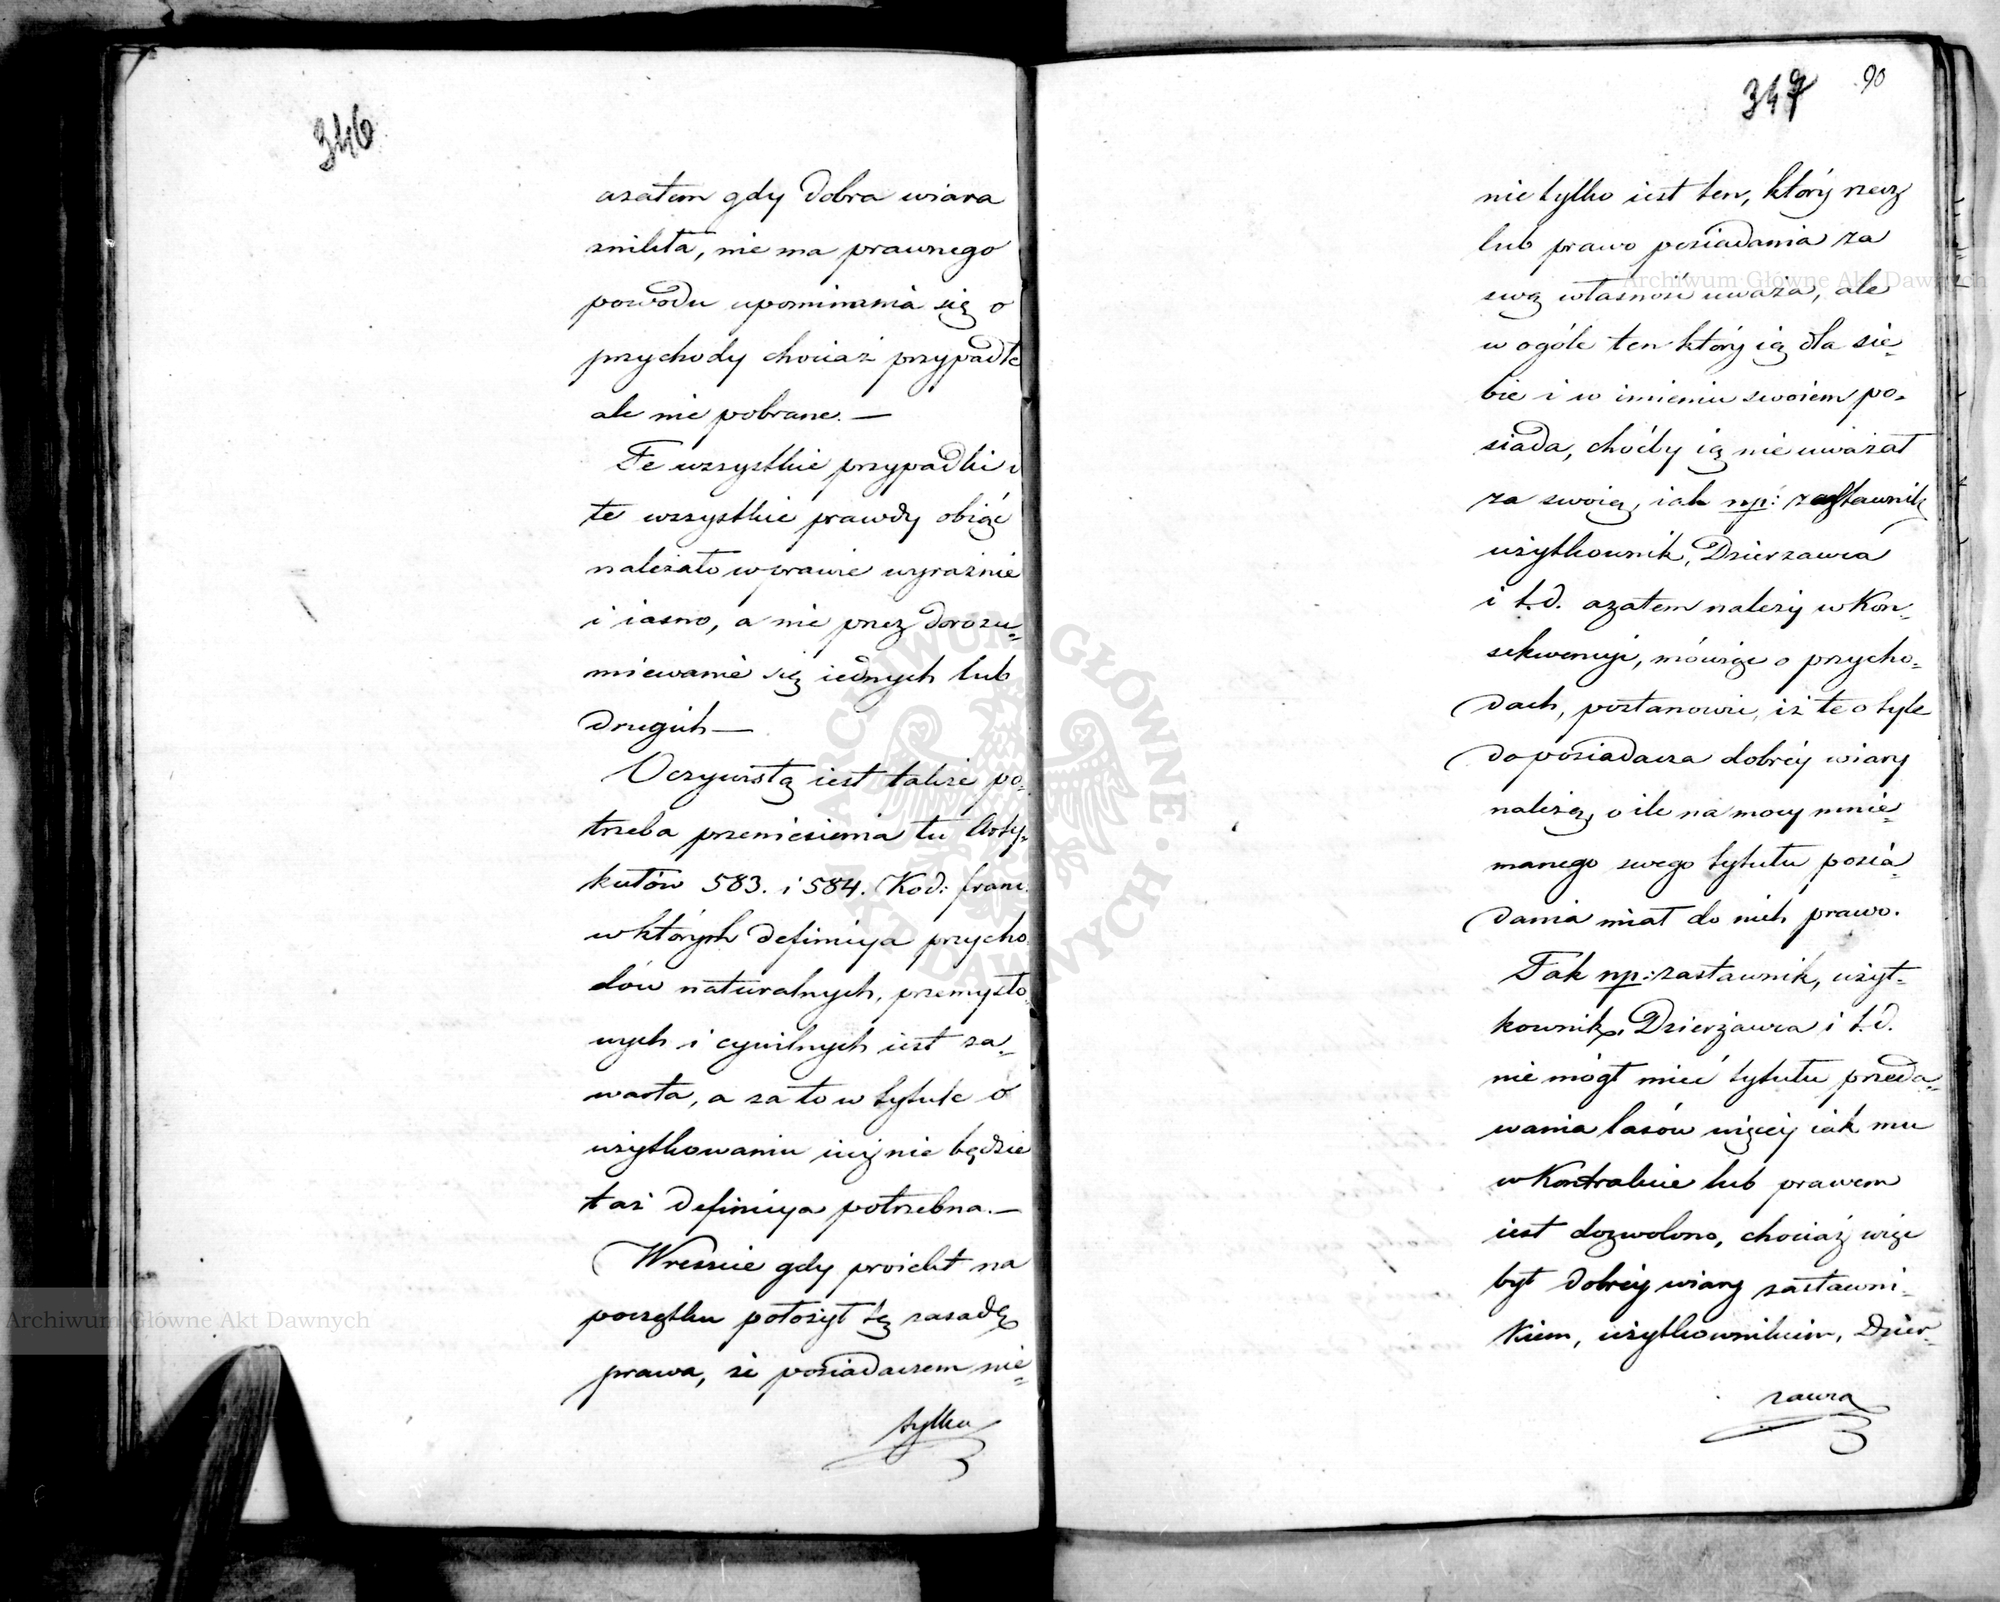 346
azatem gdy dobra wiara
znikła, nie ma prawnego
powodu upominania się o
przychody chociaż przypadłe
ale nie pobrane. —
Te wszystkie przypadki i
te wszystkie prawdy obiąć
należało w prawie wyraźnie
i iasno, a nie przez dorozu-
miewanie się iednych lub
drugich —
Oczywistą iest także po-
trzeba przeniesienia tu Arty-
kułów 583. i 584. Kod: franc.
w których definicya przycho-
dów naturalnych, przemysło-
wych i cywilnych iest za-
warta, a za to w tytule o
użytkowaniu iuż nie będzie
taż definicya potrzebna. —
Wreszcie gdy proiekt na
początku położył tę zasadę
prawa, że posiadaczem nie-
tylko
347 90
nietylko iest ten, który rzecz
lub prawo posiadania za
swą własność uważa, ale
w ogóle ten który ią dla sie-
bie i w imieniu swoiem po-
siada, choćby ią nie uważał
za swoię, iak np: zastawnik
użytkownik, Dzierzawca
i t.d. azatem należy w Kon-
sekwencyi, mówiąc o przycho-
dach, postanowić, iż te o tyle
do posiadacza dobréy wiary
należą, o ile na mocy mnie-
manego swego tytułu posia-
dania miał do nich prawo.
Tak np: zastawnik, użyt-
kownik, Dzierżawca i t.d.
nie mógł mieć tytułu przeda-
wania lasów więcéy iak mu
w Kontrakcie lub prawem
iest dozwolono, chociaż więc
był dobréy wiary zastawni-
kiem, użytkownikiem, Dzier-
zawcą
Archiwum Główne Akt Dawnych
Archiwum Główne Akt Dawnych
ARCHIWUM GŁÓWNE AKT DAWNYCH